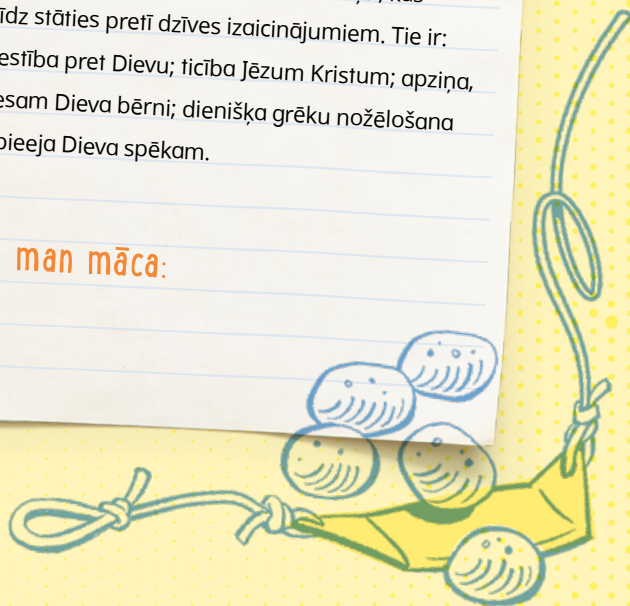 īdz stāties pretī dzīves izaicinājumiem. Tie ir:
estība pret Dievu; ticība Jēzum Kristum; apziņa,
esam Dieva bērni; dienišķa grēku nožēlošana
pieeja Dieva spēkam.
man māca: